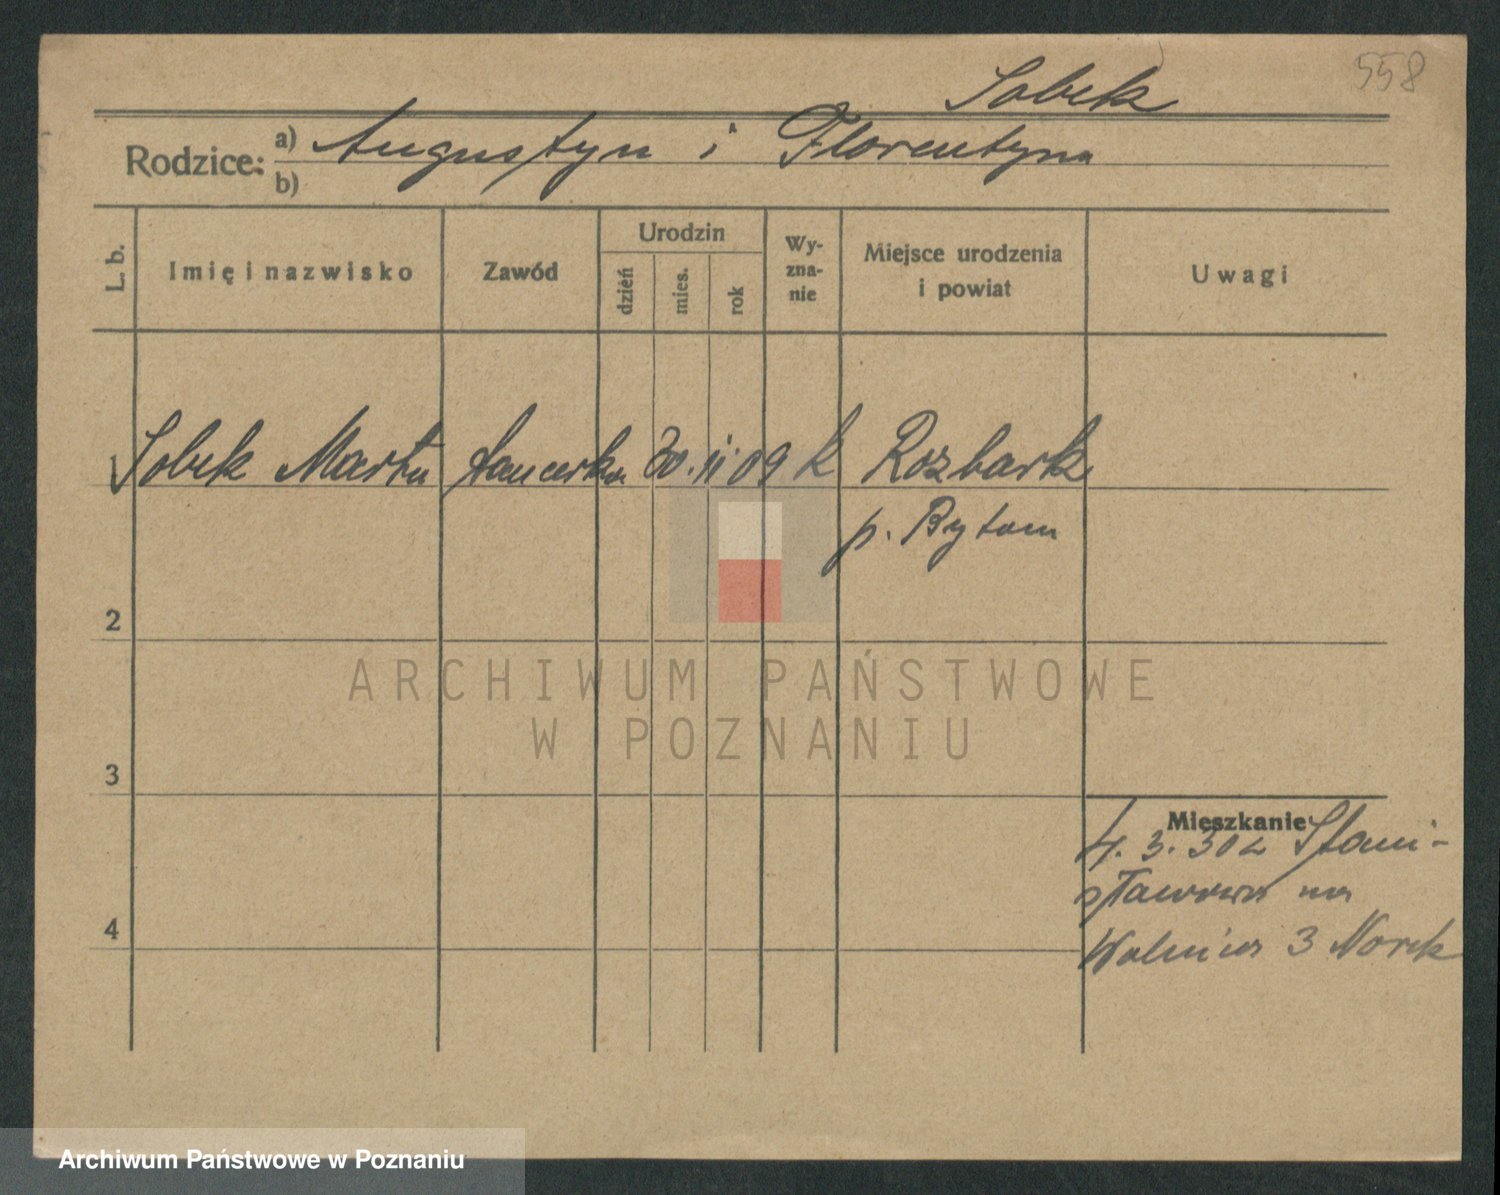 558
Sobek
Rodzice: a) Augustyn i Florentyna
b)
L. b.
Imię i nazwisko
Zawód
Urodzin
dzień
mies.
rok
Wy-
zna-
nie
Miejsce urodzenia
i powiat
Uwagi
Sobek Marta tancerka 20. 11 09 k Rozbark
p. Bytom
2
ARCHIWUM PAŃSTWOWE
W POZNANIU
3
Mieszkanie
4. 3. 30 z Stani-
sławowa na
Wolnica 3 Norek
4
Archiwum Państwowe w Poznaniu